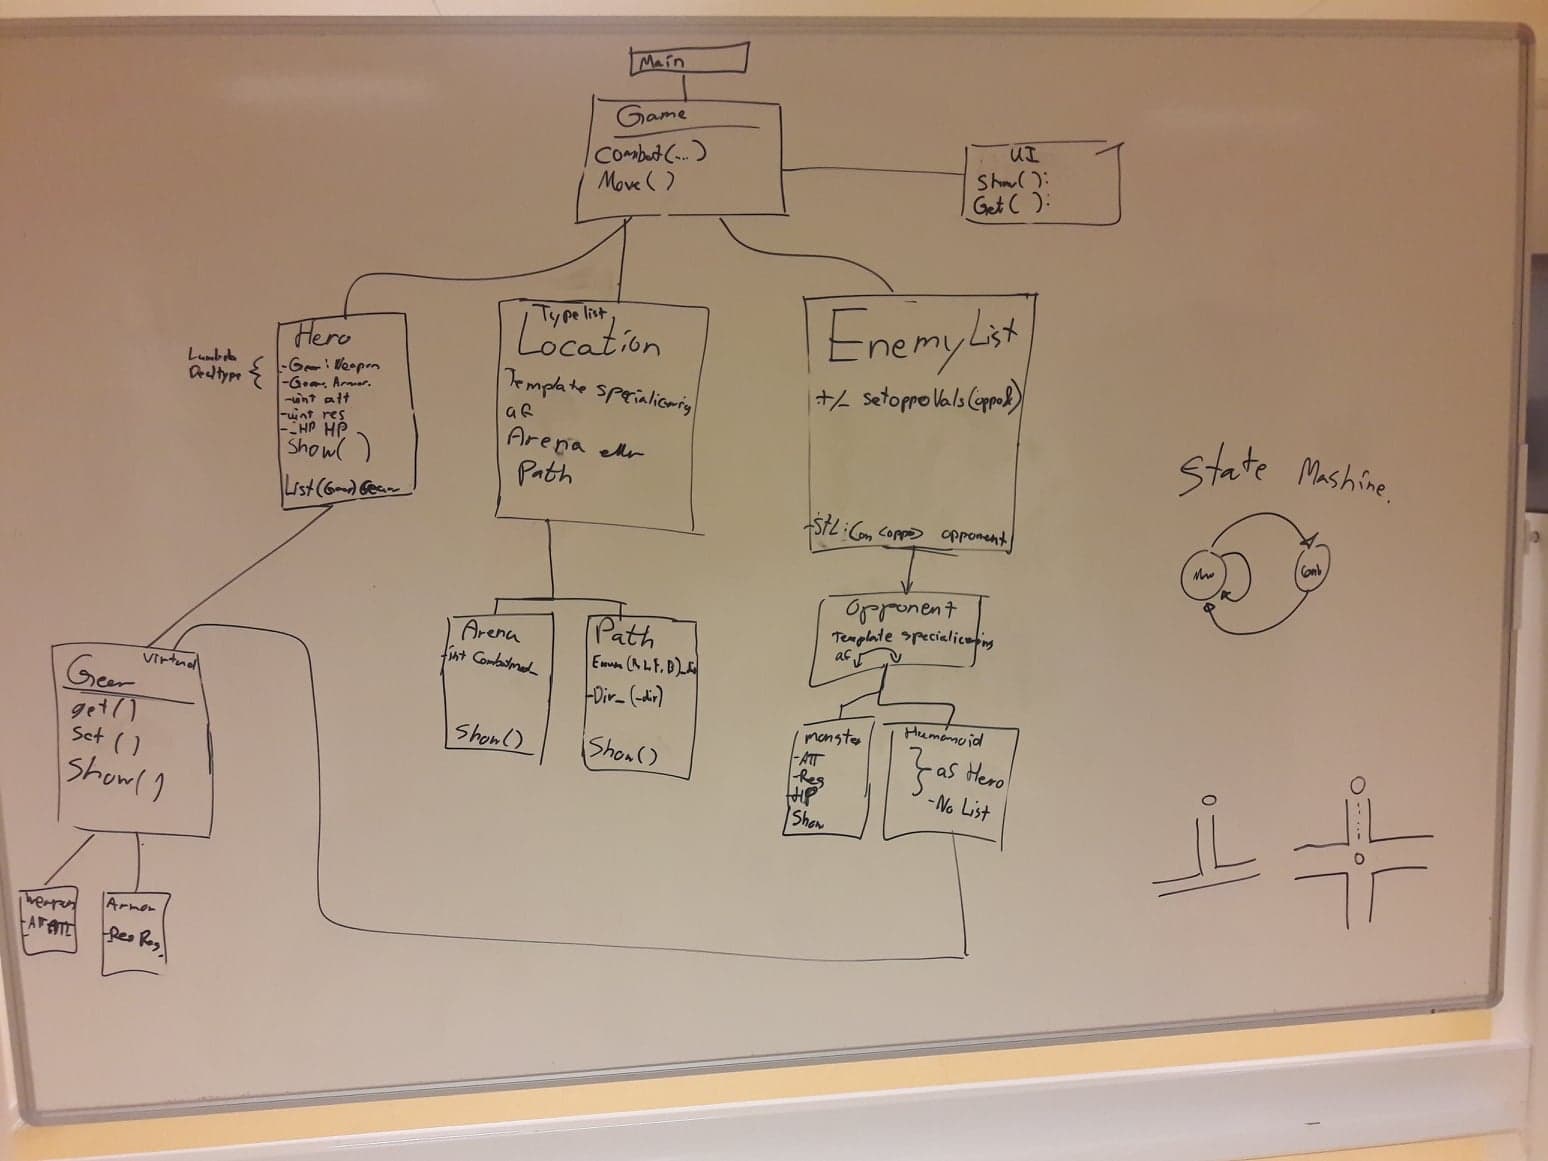 Main
Game
Combat(...)
Move( )
UI
Show( ):
Get( ):
Lambda
Decltype
Hero
-Gear: Weapon
-Gear: Armor.
-uint att
-uint res
-_HP HP
Show( )
List(Gear) Gear
Typelist
Location
Template specialicering
af
Arena eller
Path
Enemy List
+/- setoppoVals(oppo&)
<oppo> opponent
State Mashine.
Move
Comb
Arena
-int
Show()
Path
Enum(R,L,F,B)
-Dir_(-dir)
Show()
Opponent
Template specialicering
af
monster
-ATT
-Res
-HP
Show
Humanoid
as Hero
-No List
Virtual
Gear
get()
Set ()
Show()
Weapon
Armor
-Res Res